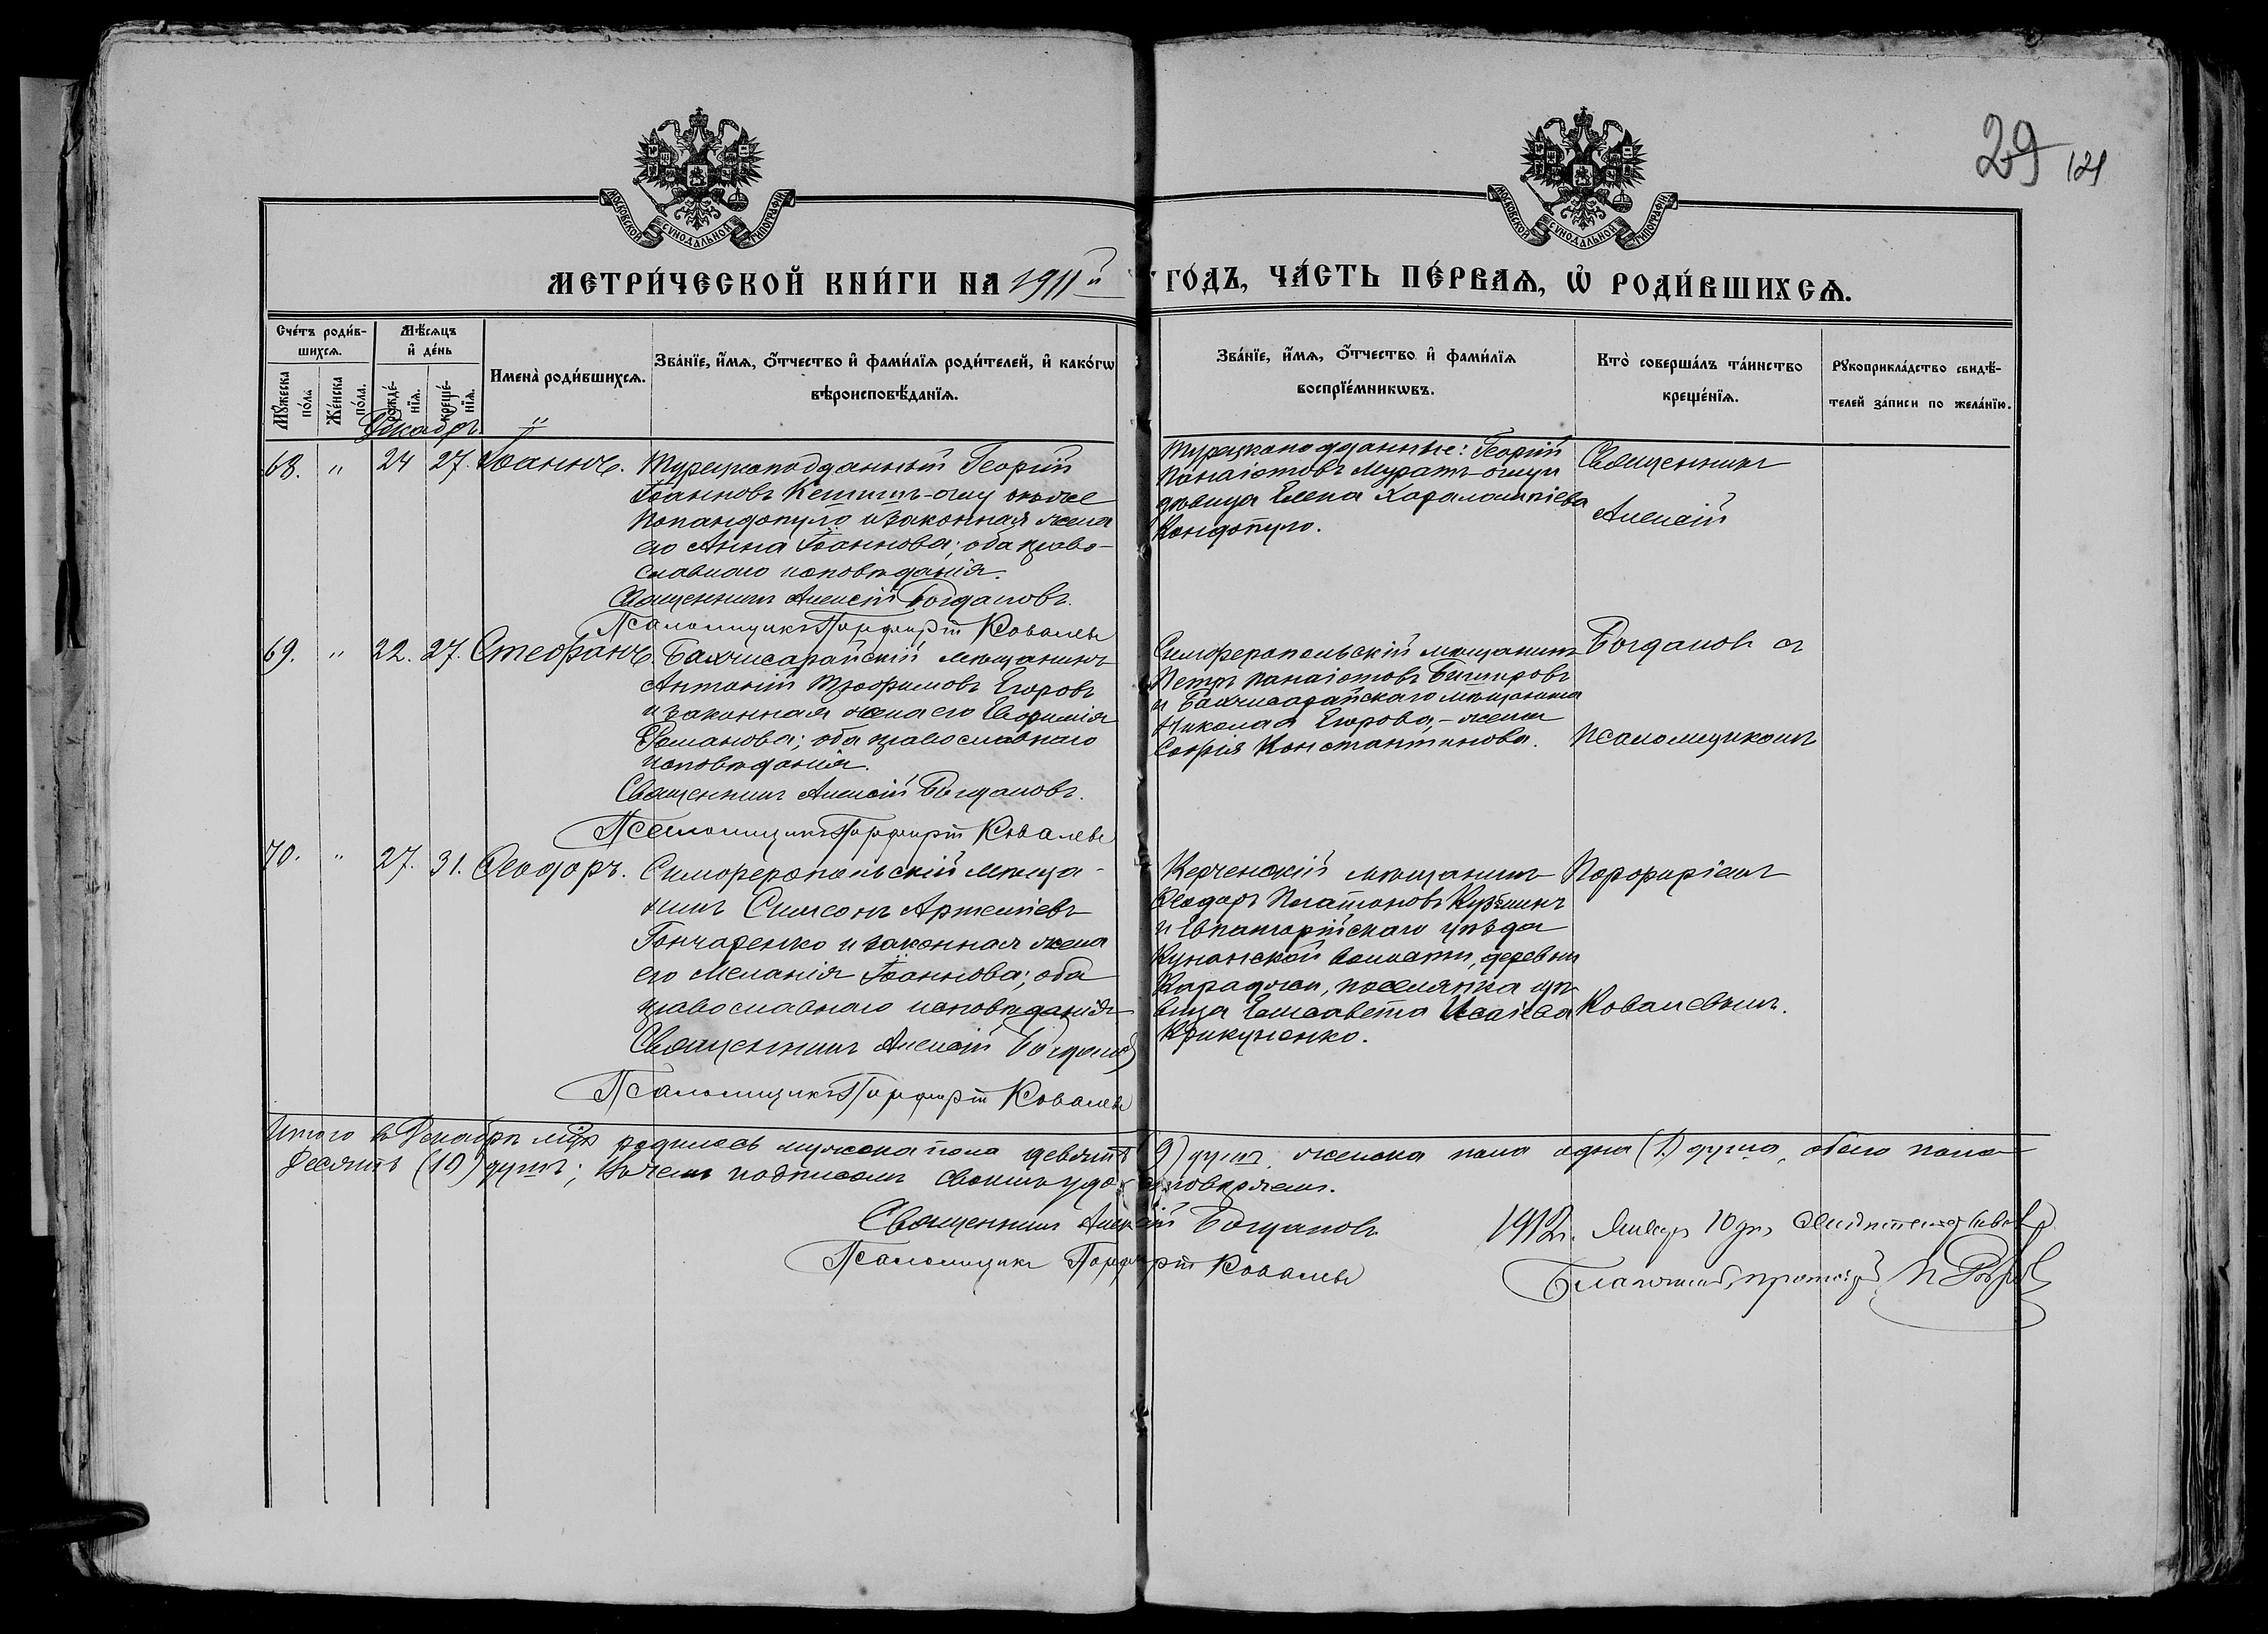 29 121
МОСКОВСКОЙ СѴНОДАЛЬНОЙ ТИПОГРАФІИ
МОСКОВСКОЙ СѴНОДАЛЬНОЙ ТИПОГРАФІИ
МЕТРИ́ЧЕСКОЙ КНИ́ГИ НА 1911й ГО́ДЪ, ЧА́СТЬ ПЕ́РВАѦ, Ѽ РОДИ́ВШИХСѦ.
Сче́тъ роди́в-
шихсѧ.
Мꙋ́жеска по́ла.
Же́нска по́ла.
Мѣ́сѧцъ
и҆ де́нь
рожде́-нїѧ.
креще́-нїѧ.
Имена̀ роди́вшихсѧ.
Зва́нїе, и҆́мѧ, о҆́тчество и҆ фами́лїѧ роди́телей, и҆ како́гѡ
вѣроисповѣ́данїѧ.
Зва́нїе, и҆́мѧ, о҆́тчество и҆ фами́лїѧ
воспрїе́мникѡвъ.
Кто̀ соверша́лъ та́инство
креще́нїѧ.
Рꙋкоприкла́дство свидѣ́-
телей за́писи по жела́нїю.
Декабрь.
68. " 24 27. Іоаннъ.
Турецкоподданный Георгій
Іоанновъ Кешишъ-оглу онъ же
Попандопуло и законная жена
его Анна Іоаннова; оба право-
славнаго исповѣданія.
Священникъ Алексій Богдановъ.
Псаломщикъ Порфирій Ковалевъ
Турецкоподданные: Георгій
Панаіотовъ Муратъ-оглу и
дѣвица Елена Харалампіева
Кондопуло.
Священникъ
Алексій
69. " 22. 27. Стефанъ.
Бахчисарайскій мѣщанинъ
Антоній Трофимовъ Егоровъ
и законная жена его Евфимія
Романова; оба православнаго
исповѣданія.
Священникъ Алексій Богдановъ.
Псаломщикъ Порфирій Ковалевъ
Симферопольскій мѣщанинъ
Петръ Панаіотовъ
и Бахчисарайскаго мѣщанина
Николая Егорова, - жена
Софія Константинова.
Богдановъ съ
псаломщикомъ
70. " 27. 31. Ѳеодоръ.
Симферопольскій мѣща-
нинъ Симеонъ Артеміевъ
Гончаренко и законная жена
его Меланія Іоаннова; оба
православнаго исповѣданія
Священникъ Алексій Богдановъ
Псаломщикъ Порфирій Ковалевъ
Керченскій мѣщанинъ
Ѳеодоръ Платоновъ
и Евпаторійскаго уѣзда
Кунанской волости, деревни
поселянка дѣ-
вица Елисавета Исаіева
Крикуненко.
Порфиріемъ
Ковалевымъ.
Итого въ Декабрѣ мцѣ родилось мужска пола девять (9) душъ, женска пола одна (1) душа, обоего пола
десять (10) душъ; въ чемъ подписомъ своимъ удостовѣряемъ.
Священникъ Алексій Богдановъ
Псаломщикъ Порфирій Ковалевъ
1912 г. Января 10 дня
Благочинный, протоіерей